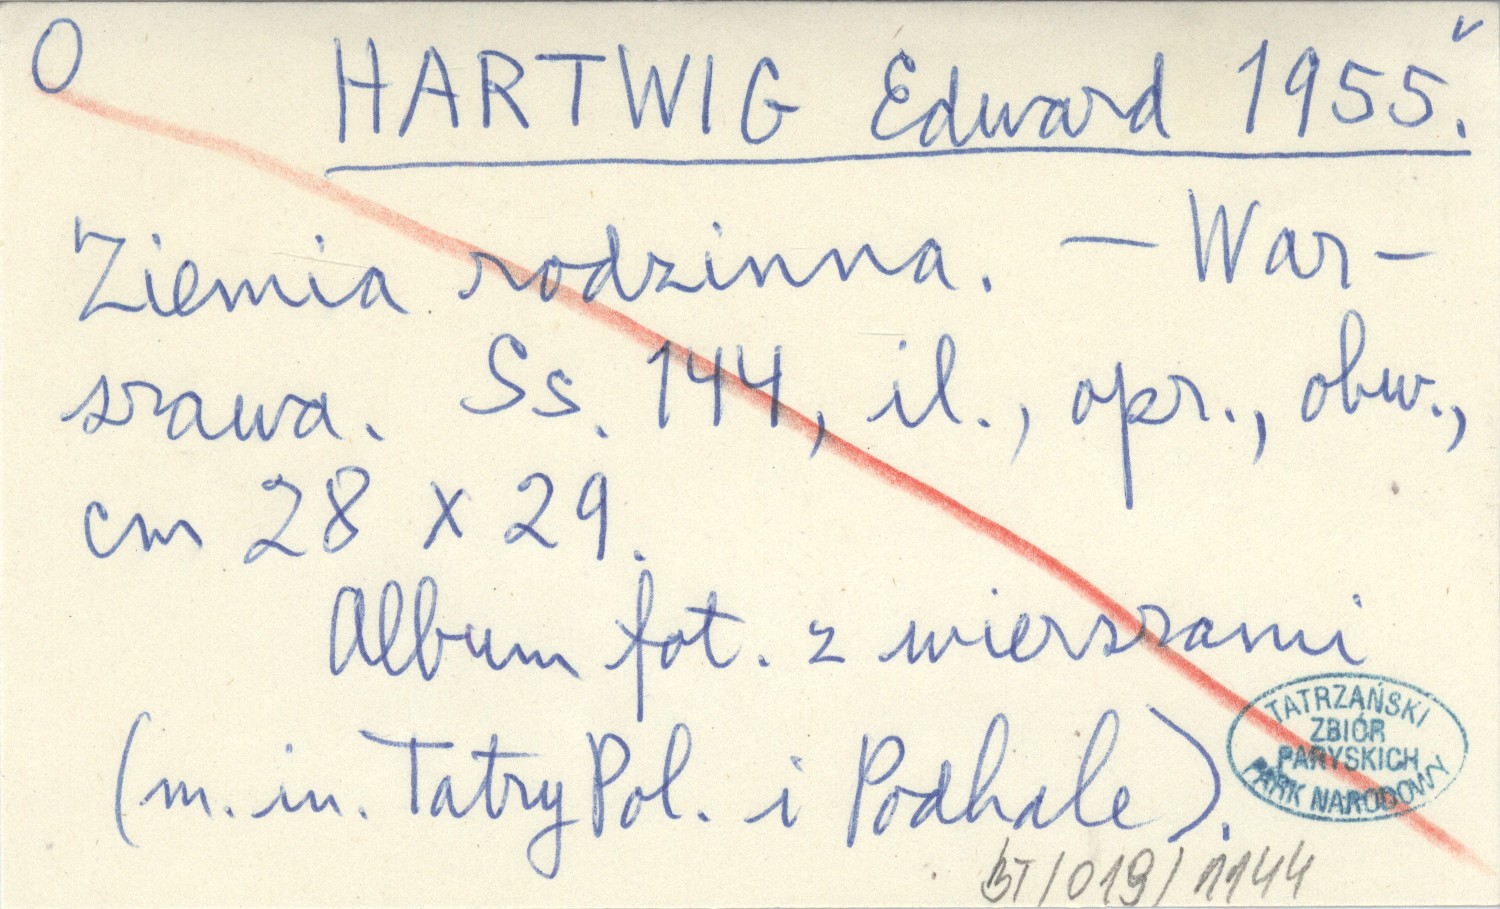 O HARTWIG Edward 1955. v
Ziemia rodzinna. — War-
szawa. Ss. 144, il., opr., obw.,
cm 28 x 29.
Album fot. z wierszami
(m. in. Tatry Pol. i Podhale).
TATRZAŃSKI
ZBIÓR
PARYSKICH
PARK NARODOWY
BT/019/1144